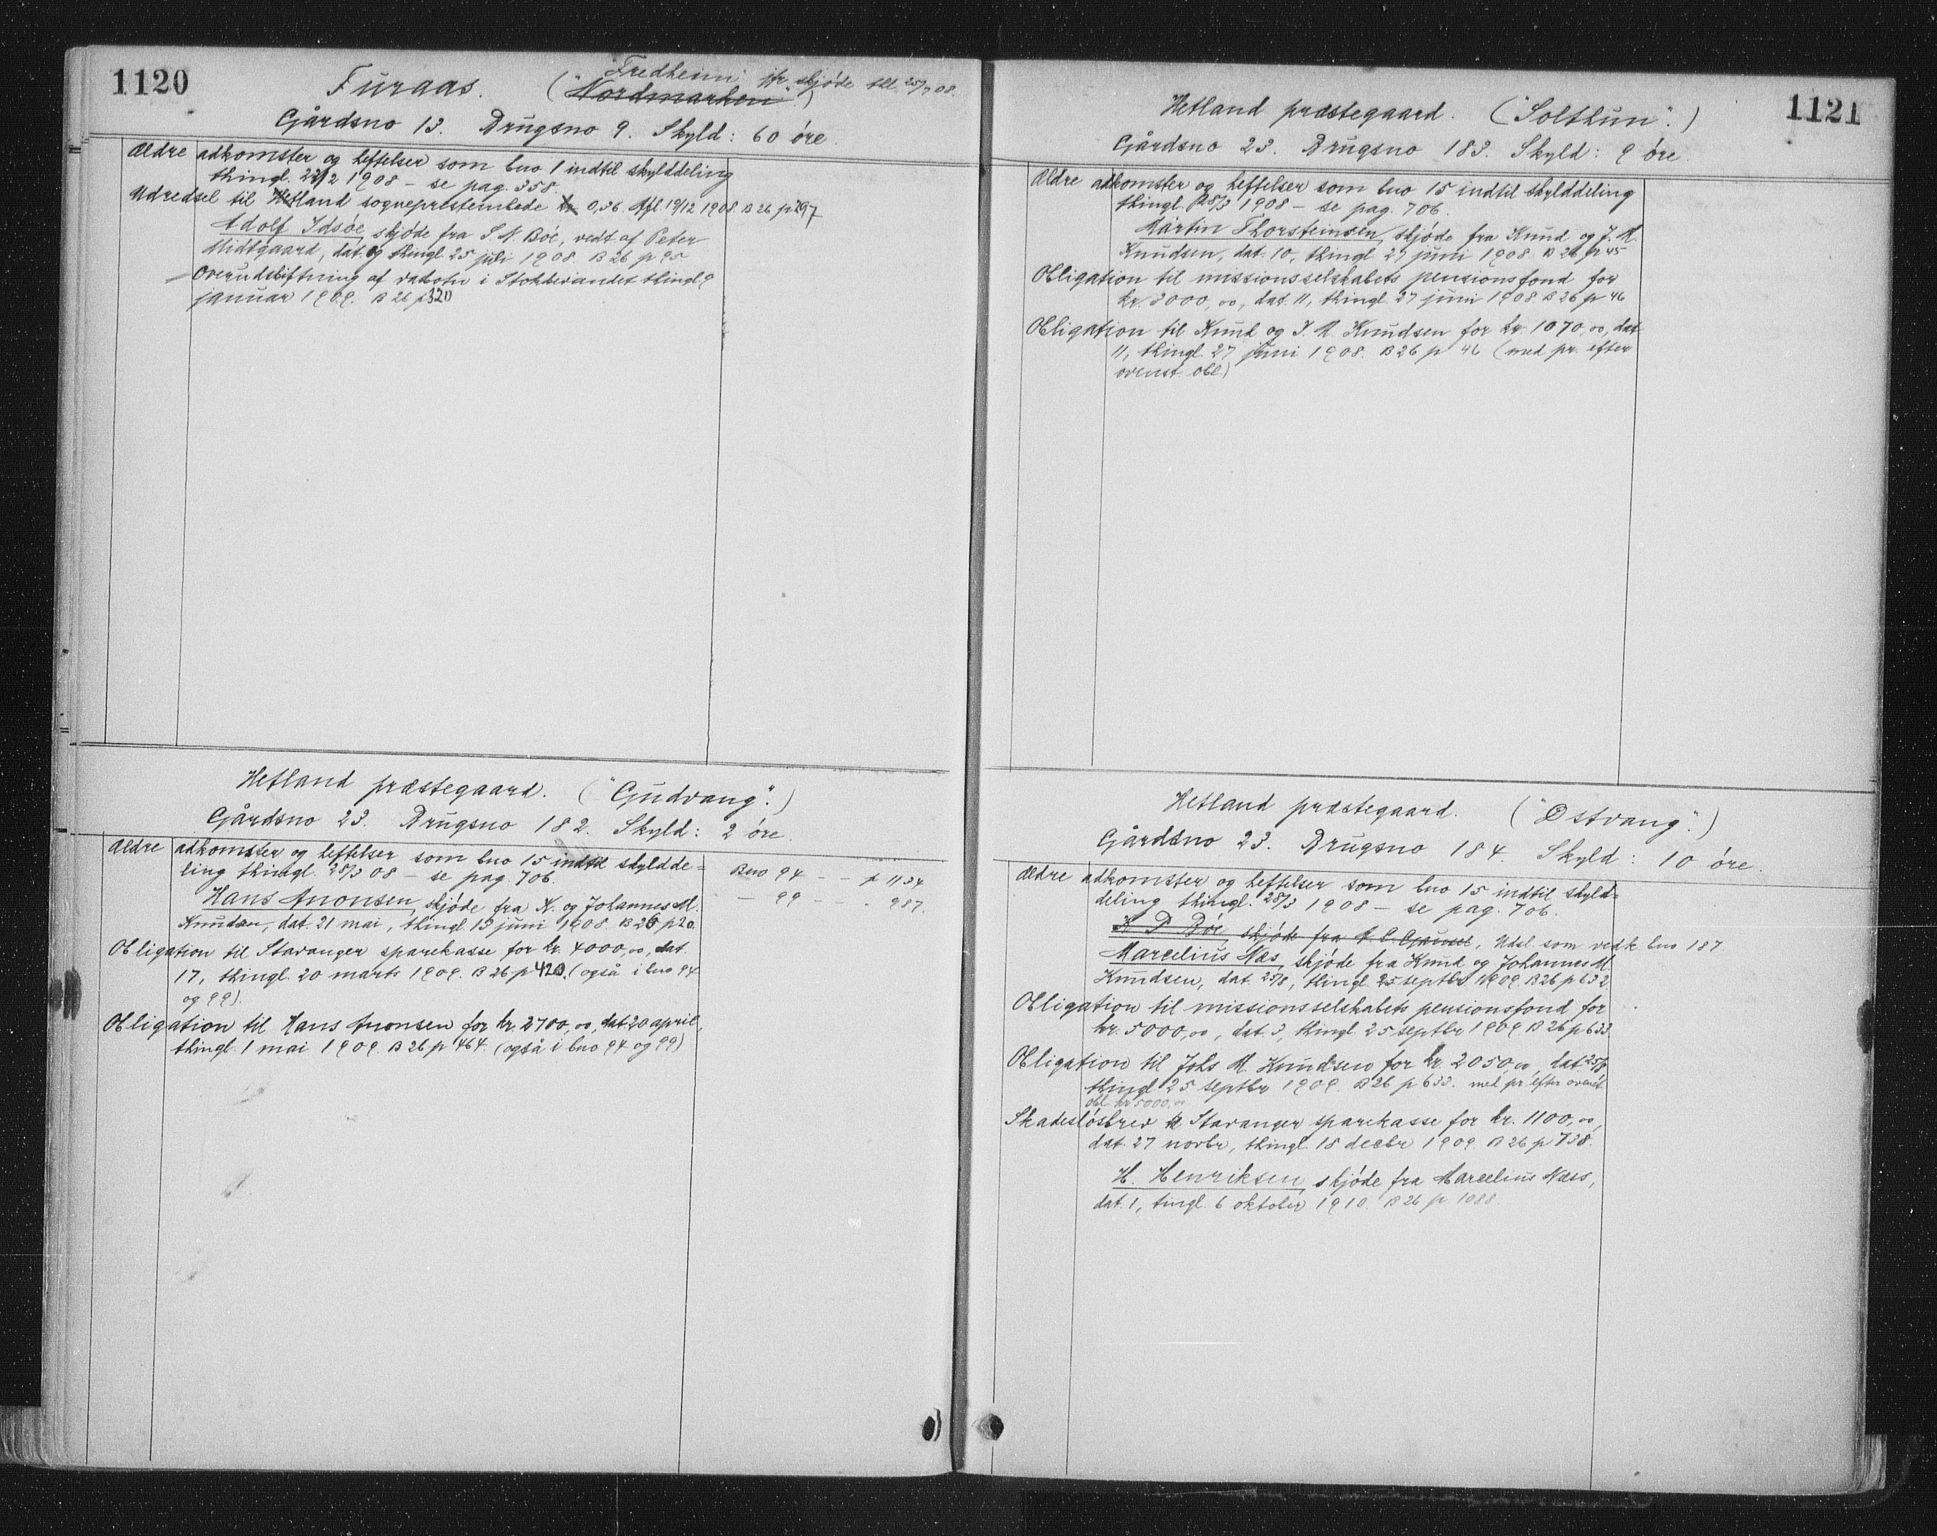 1120
Furaas. ("Fredheim" jfr. skjøde thl. 25/7 08.
"Nordmarken")
Gårdsno 13. Brugsno 9. Skyld: 60 øre.
Ældre adkomster og heftelser som bno 1 indtil skylddeling
thingl. 22/2 1908 - se pag. 358.
Udredsel til Hetland sogneprestembede kr 0,36. Afl. 19/12 1908. B 26 p 297
Adolf Idsøe, skjøde fra S. N. Bøe, vedt af Peter
Midtgaard, dat. og thingl. 25 juli 1908. B 26 p 95
Overudskiftning af i Stokkevandet thingl. 9
januar 1909. B 26 p 320
Hetland præstegaard. ("Gudvang".)
Gårdsno 23. Brugsno 182. Skyld: 2 øre.
Ældre adkomster og heftelser som bno 15 indtil skyldde=
ling thingl. 28/3 08 - se pag. 706.
Bno 94 - - p 1134
- 99 - - . 987.
Hans Anonsen, skjøde fra K. og Johannes M.
Knudsen, dat. 21 mai, thingl. 13 juni 1908. B 26 p 20.
Obligation til Stavanger sparekasse for kr. 4000,00, dat.
17, thingl. 20 marts 1909. B 26 p 420. (også i bno 94
og 99).
Obligation til Hans Anonsen for kr. 2700,00, dat 20 april,
thingl. 1 mai 1909. B 26 p 464. (også i bno 94 og 99)
1121
Hetland præstegaard. ("Solthun".)
Gårdsno 23. Brugsno 183. Skyld: 9 øre.
Ældre adkomster og heftelser som bno 15 indtil skylddeling
thingl. 28/3 1908 - se pag. 706.
Martin Thorsteinsen, skjøde fra Knud og J. M.
Knudsen, dat. 10, thingl 27 juni 1908. B 26 p 45
Obligation til missionsselskabets pensionsfond for
kr. 3000,00, dat. 11, thingl. 27 juni 1908 B 26 p 46
Obligation til Knud og J. M. Knudsen for kr. 1070,00, dat.
11, thingl. 27 juni 1908. B 26 p 46 (med pr. efter
ovenst. obl.)
Hetland præstegaard. ("Østvang".)
Gårdsno 23. Brugsno 184. Skyld: 10 øre.
Ældre adkomster og heftelser som bno 15 indtil skyld=
deling thingl. 28/3 1908 - se pag. 706.
K P Bøe, skjøde fra A C Gausel, Udsl. som vedk bno 187.
Marcelius Næs, skjøde fra Knud og Johannes M.
Knudsen, dat. 25/8, thingl. 25 septbr 1909. B 26 p 632
Obligation til missionsselskabets pensionsfond for
kr. 5000,00, dat. 3, thingl. 25 septbr 1909 B 26 p 633
Obligation til Johs M. Knudsen for kr. 2050,00, dat 25/8
thingl. 25 septbr 1909. B 26 p 633. med pr. efter ovenst.
obl. kr 5000,00
Skadesløsbrev til Stavanger sparekasse for kr. 1100,00,
dat. 27 novbr, thingl. 18 decbr 1909. B 26 p 738.
H. Henriksen, skjøde fra Marcelius Næss,
dat. 1, tingl. 6 oktober 1910. B 26 p 1088.